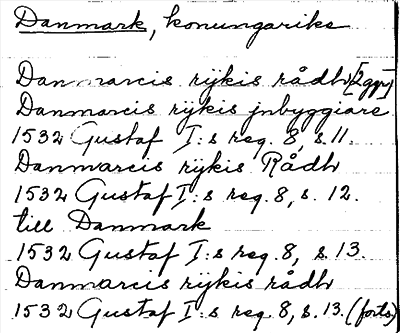 Danmark, konungarike
Danmarcis rijkis rådh [2 ggr]
Danmarcis rijkis jnbyggiare
1532 Gustaf I:s reg. 8, s. 11.
Danmarcis rijkis Rådh
1532 Gustaf I:s reg. 8, s. 12.
till Danmark
1532 Gustaf I:s reg. 8, s. 13.
Danmarcis rijkis rådh
1532 Gustaf I:s reg. 8, s. 13. (forts)